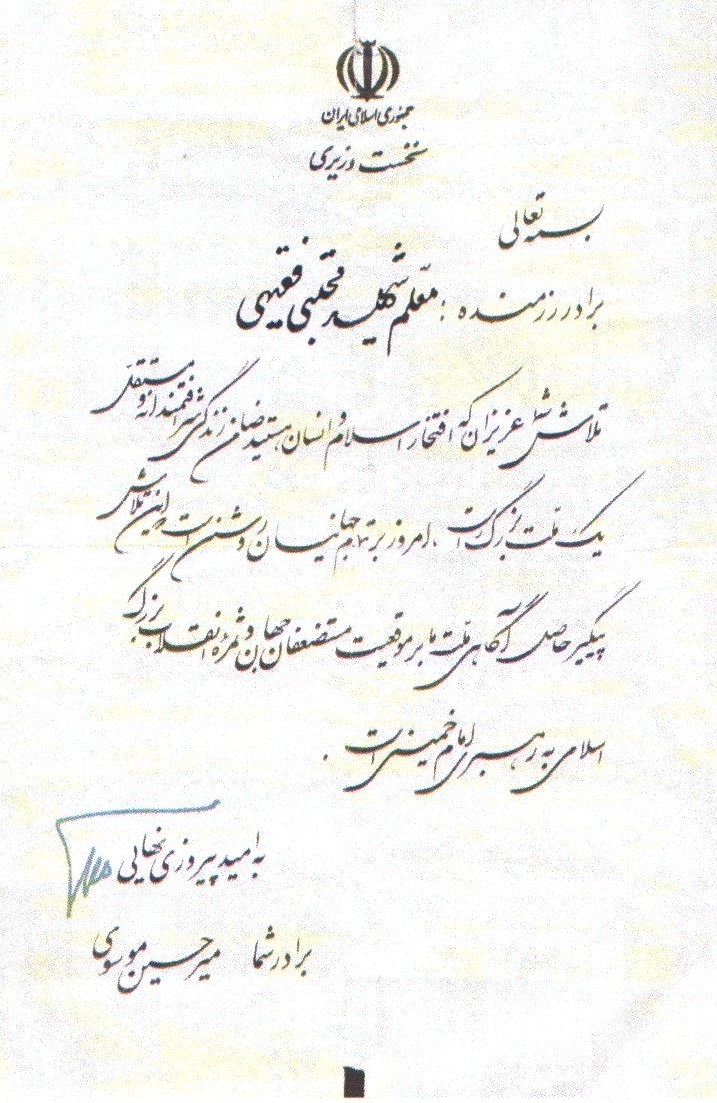 جمهوری اسلامی ایران
نخست وزیری
بسمه تعالی
برادر رزمنده : معلم شهید مجتبی فقیهی
تلاش شما عزیزان که افتخار اسلام و انسان هستید ضامن زندگی شرافتمندانه و مستقل
یک ملت بزرگ است ، امروز بر تمام جهانیان روشن است این تلاش
پیگیر حاصل آگاهی ملت ما بر موقعیت مستضعفان جهان و ثمره انقلاب بزرگ
اسلامی به رهبری امام خمینی است .
به امید پیروزی نهایی
برادر شما میرحسین موسوی